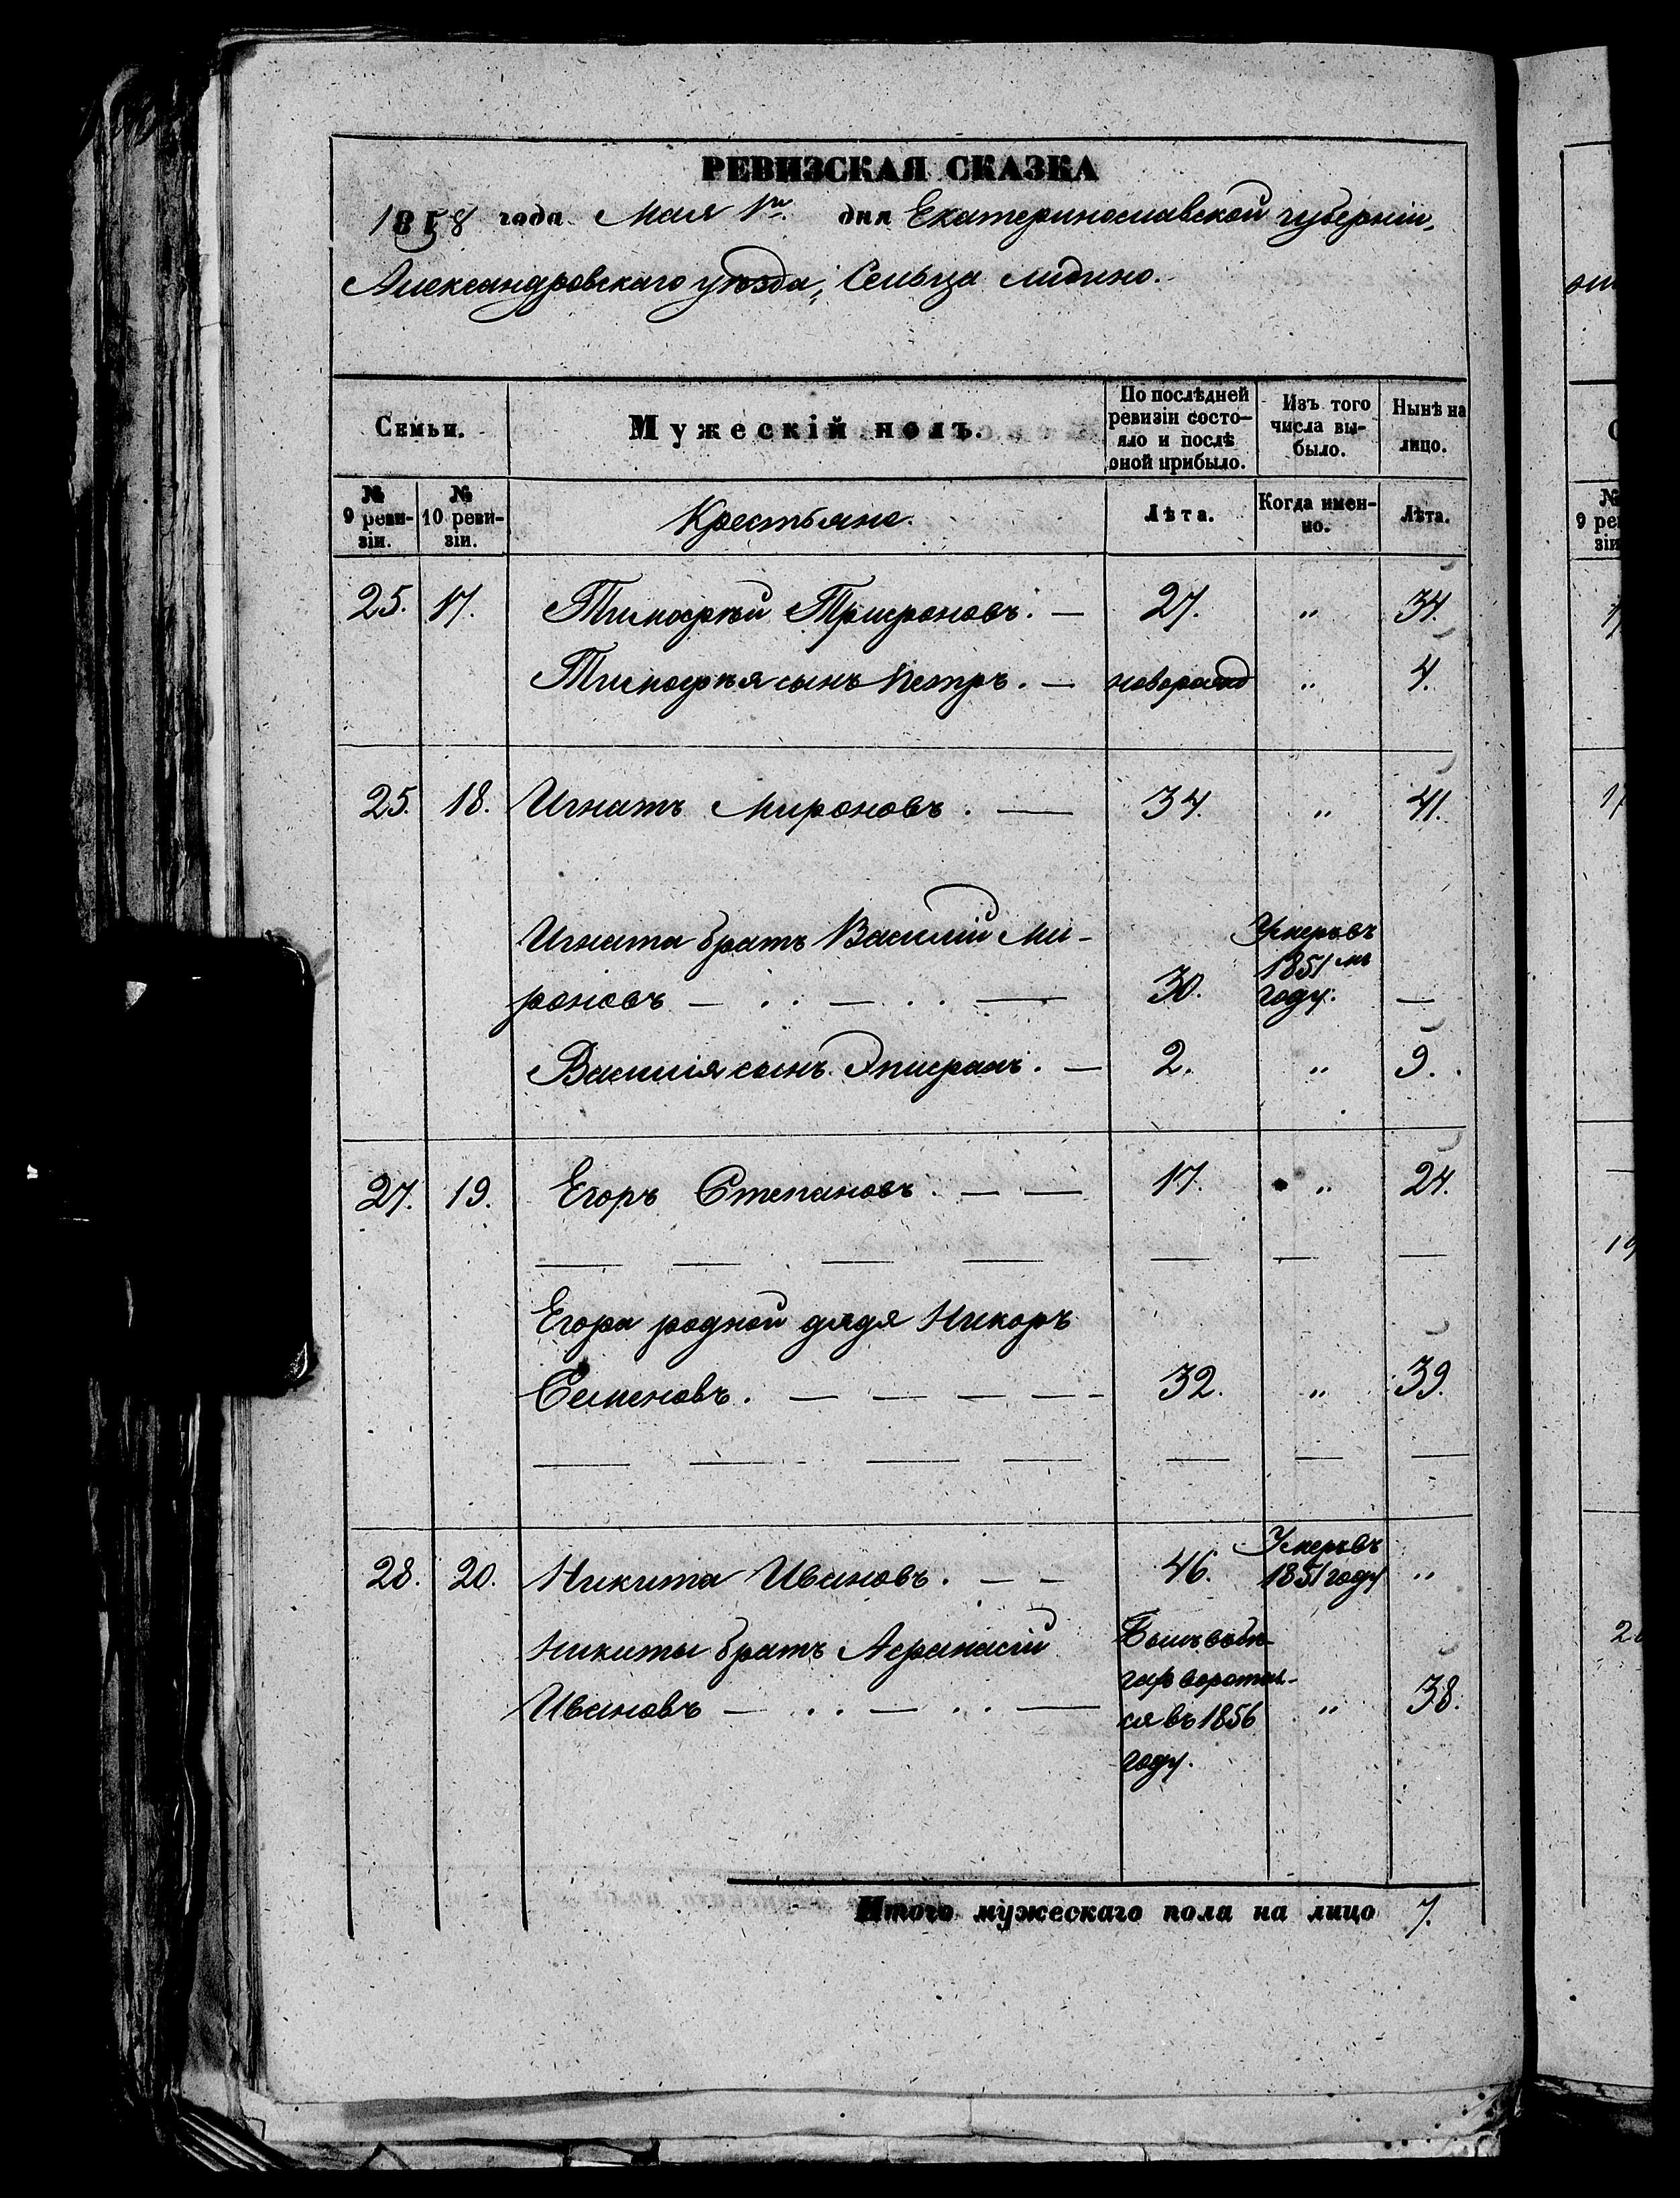 РЕВИЗСКАЯ СКАЗКА
1858 года Мая 1го дня Екатеринославской губерніи,
Александровскаго уѣзда, Сельца Лидино.
Семьи.
Мужескій полъ.
По послѣдней ревизіи состояло и послѣ оной прибыло.
Изъ того числа выбыло.
Нынѣ на лицо.
№ 9 ревизіи.
№ 10 ревизіи.
Крестьяне.
Лѣта.
Когда именно.
Лѣта.
25. 17. Тимофѣй Трифоновъ. — 27. " 34.
Тимофѣя сынъ Петръ. — новорожд " 4.
25. 18. Игнатъ Мироновъ. — 34. " 41.
Игната братъ Василій Ми-
роновъ — . . — . . — 30. Умеръ въ 1851мъ году. —
Василія сынъ Епифанъ. — 2. " 9.
27. 19. Егоръ Степановъ. — — 17. " 24.
Егора родной дядя Никоръ
Семеновъ. — — — — 32. " 39.
28. 20. Никита Ивановъ. — — 46. Умеръ въ 1851 году "
Никиты братъ Афанасій
Ивановъ — . . — . . — Былъ въ бѣгах воротился въ 1856 году. " 38.
Итого мужескаго пола на лицо 7.
№
9 ре
зі